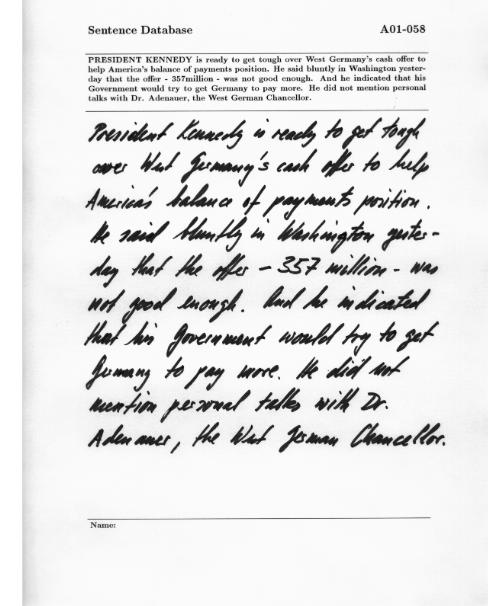 Sentence Database A01-058
PRESIDENT KENNEDY is ready to get tough over West Germany's cash offer to
help America's balance of payments position. He said bluntly in Washington yester-
day that the offer - 357million - was not good enough. And he indicated that his
Government would try to get Germany to pay more. He did not mention personal
talks with Dr. Adenauer, the West German Chancellor.
President Kennedy is ready to get tough
over West Germany's cash offer to help
America's balance of payments position.
He said bluntly in Washington yester-
day that the offer - 357 million - was
not good enough. And he indicated
that his Government would try to get
Germany to pay more. He did not
mention personal talks with Dr.
Adenauer, the West German Chancellor.
Name: